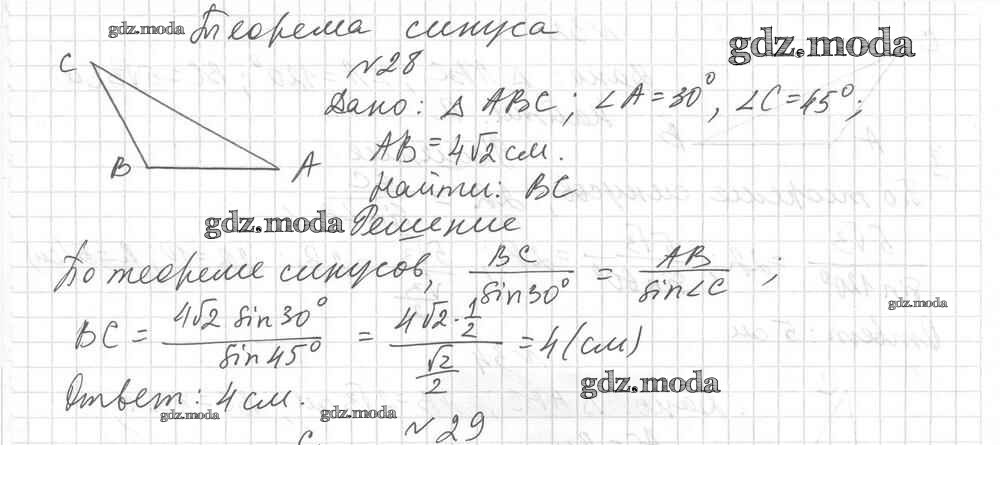 gdz.moda Теорема синуса gdz.moda
C №28
Дано: △ ABC; ∠A=30°, ∠C=45°;
AB=4√2 см.
B A
Найти: BC
gdz.moda Решение
По теореме синусов, BC/sin30° = AB/sin∠C ;
gdz.moda
BC = 4√2 sin30°/sin45° = 4√2·1/2/√2/2 = 4(см)
gdz.moda
Ответ: 4 см.
gdz.moda gdz.moda №29
C